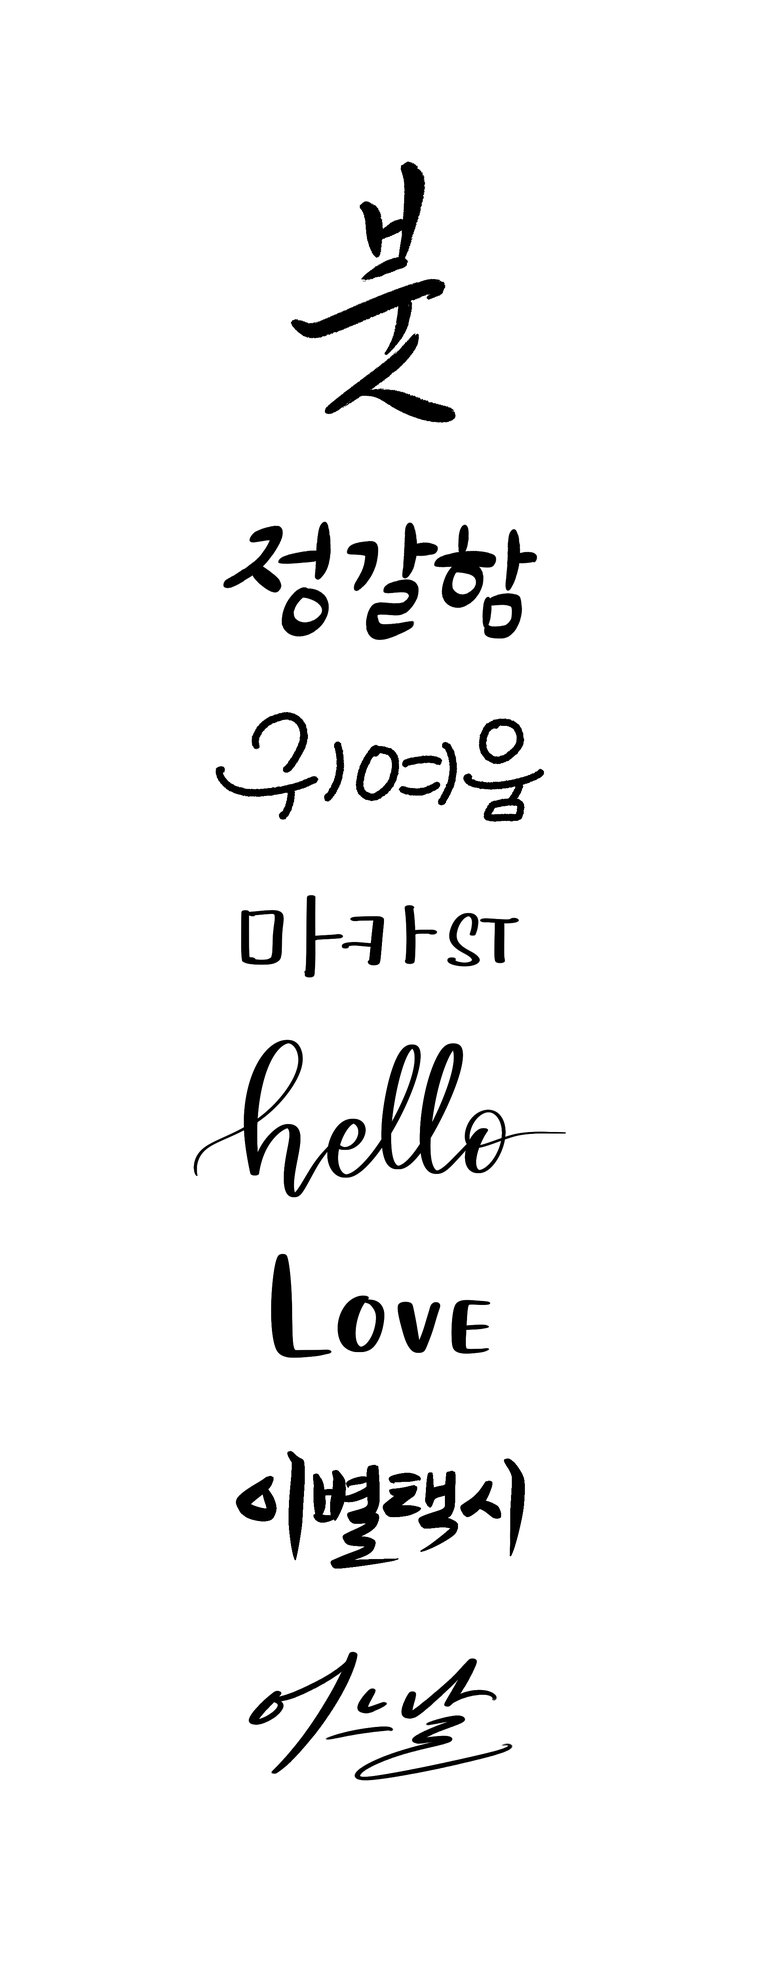 붓
정갈함
귀여움
마카ST
hello
LOVE
이별택시
어느날